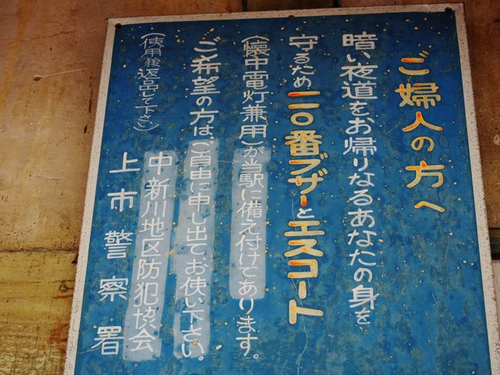 ご婦人の方へ
暗い夜道をお帰りなるあなたの身を
守るため一一〇番ブザーとエスコート
(懐中電灯兼用)が当駅に備え付けてあります。
ご希望の方は、ご自由に申し出てお使い下さい。
(使用後返品して下さい)
中新川地区防犯協会
上市警察署